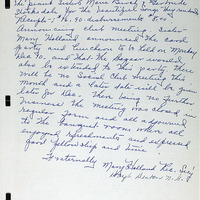 the piano solist Marie Burch & Gertrude
for the beautiful song they sang
Receipts $16.90 disbursements $5.00
Announcing club meeting Sister
Mary Holland announced the card
party and luncheon to be held on Monday
Nov 20, and that the Bazaar would
also be extended to this party. There
will be no Social Club meeting this
month and a later date will be given
later for Dec. There being no further
business the meeting was closed in
regular form and all adjourned
to the banquet room where all
enjoyed refreshments and expressed
good fellowship and time
Fraternally
Mary Holland Rec. Sec'y